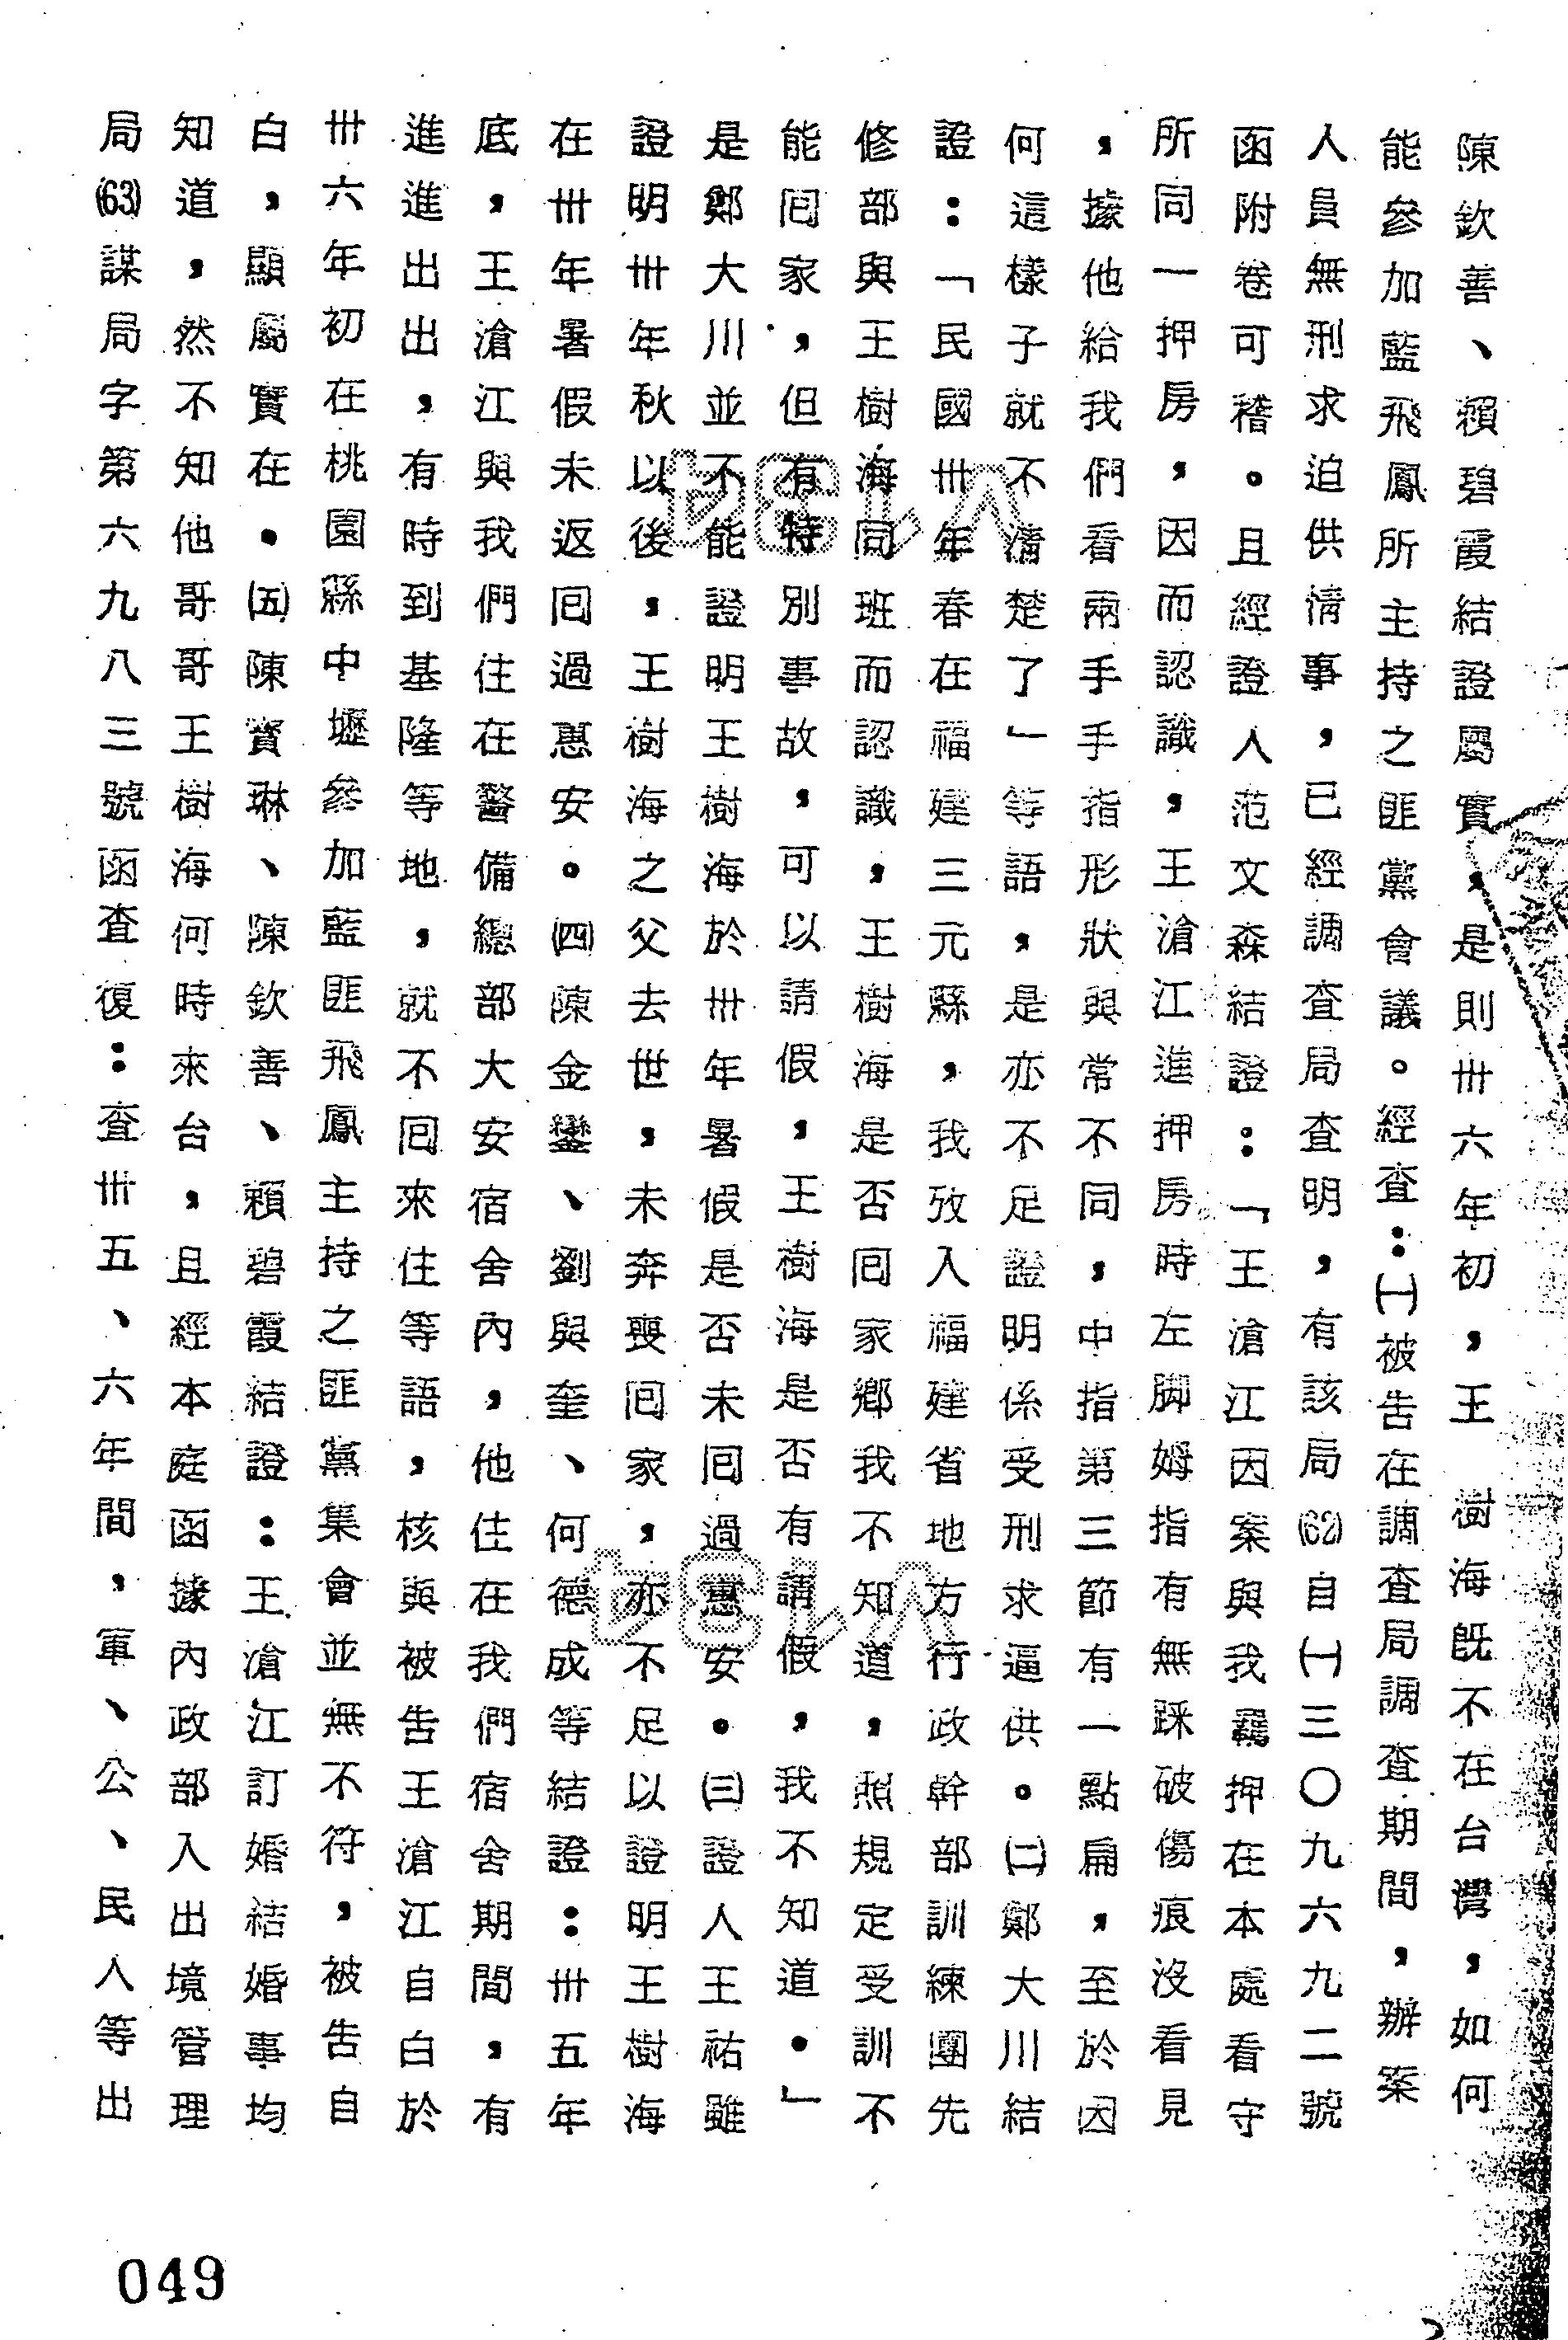 陳欽善、賴碧霞結證屬實，是則卅六年初，王　樹海既不在台灣，如何
能參加藍飛鳳所主持之匪黨會議。經查：㈠被告在調查局調查期間，辦案
人員無刑求迫供情事，已經調查局查明，有該局(62)自㈠三〇九六九二號
函附卷可稽。且經證人范文森結證：「王滄江因案與我羈押在本處看守
所同一押房，因而認識，王滄江進押房時左脚姆指有無踩破傷痕沒看見
，據他給我們看兩手手指形狀與常不同，中指第三節有一點扁，至於因
何這樣子就不清楚了」等語，是亦不足證明係受刑求逼供。㈡鄭大川結
證：「民國卅年春在福建三元縣，我攷入福建省地方行政幹部訓練團先
修部與王樹海同班而認識，王樹海是否囘家鄉我不知道，照規定受訓不
能囘家，但有特別事故，可以請假，王樹海是否有請假，我不知道。」
是鄭大川並不能證明王樹海於卅年暑假是否未囘過惠安。㈢證人王祐雖
證明卅年秋以後，王樹海之父去世，未奔喪囘家，亦不足以證明王樹海
在卅年暑假未返囘過惠安。㈣陳金鑾、劉與奎、何德成等結證：卅五年
底，王滄江與我們住在警備總部大安宿舍內，他住在我們宿舍期間，有
進進出出，有時到基隆等地，就不囘來住等語，核與被告王滄江自白於
卅六年初在桃園縣中壢參加藍匪飛鳳主持之匪黨集會並無不符，被告自
白，顯屬實在。㈤陳寶琳、陳欽善、賴碧霞結證：王滄江訂婚結婚事均
知道，然不知他哥哥王樹海何時來台，且經本庭函據內政部入出境管理
局(63)謀局字第六九八三號函查復：查卅五、六年間，軍、公、民人等出
049
V134
V134